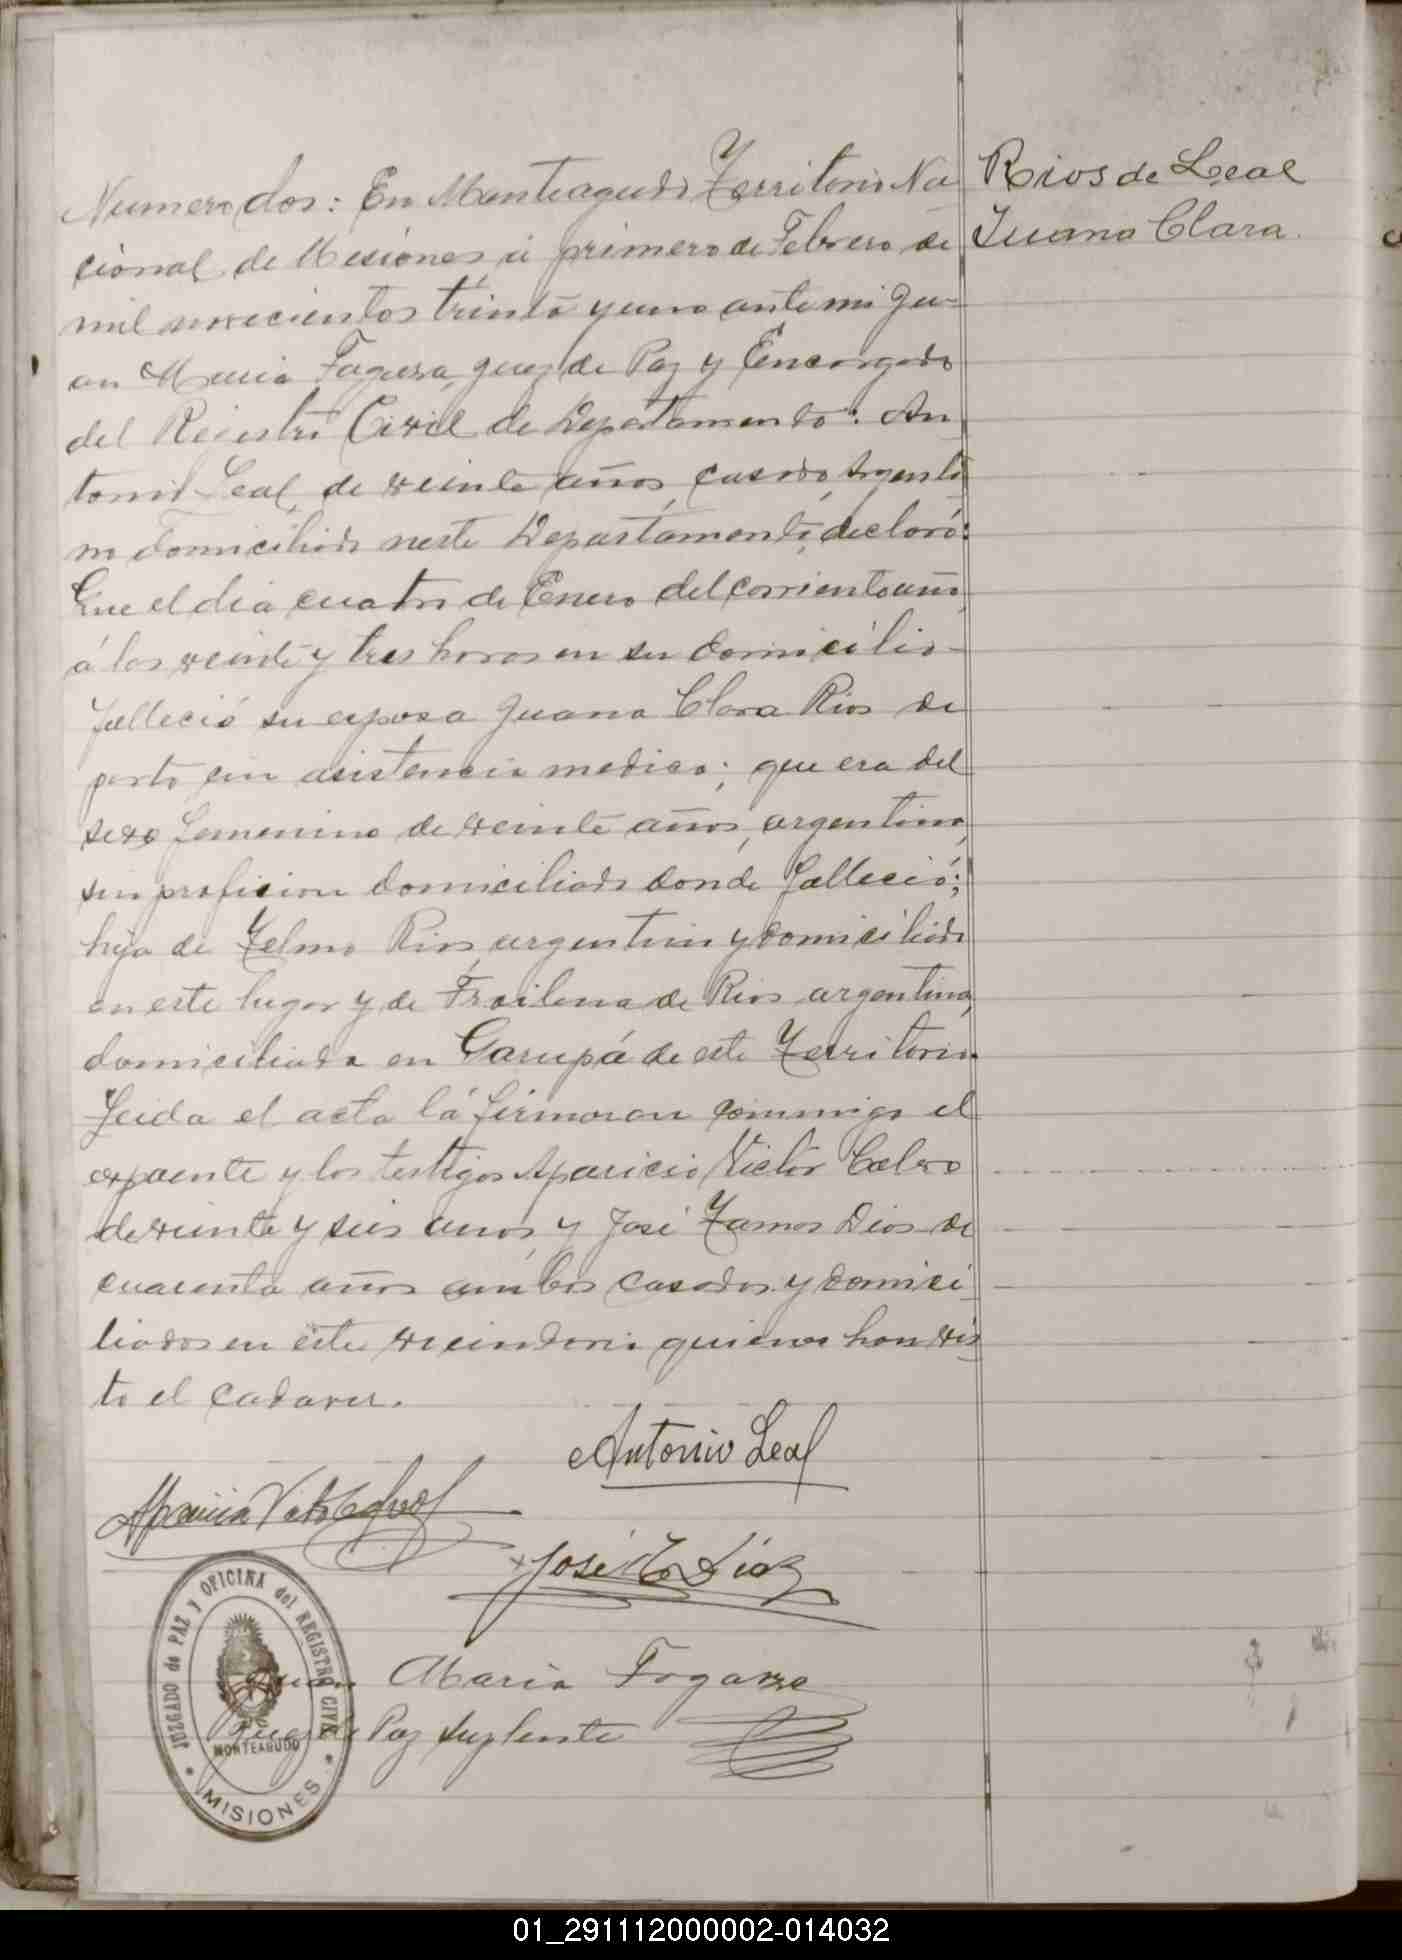 Rios de Leal
Juana Clara.
Numero dos: En Monteagudo Territorio Na
cional de Misiones á primero de Febrero de
mil novecientos treinta y uno ante mi Ju-
an Maria Fogarza, Juez de Paz y Encargado
del Registro Civil de Departamento: An
tonio Leal, de veinte años, casado, Argenti
no domiciliado neste Departamento, declaró:
Que el dia cuatro de Enero del corriente año,
á las veinte y tres horas en su domicilio-
falleció su esposa Juana Clara Rios de
parto sin asistencia medica; que era del
sexo femenino de veinte años, argentina,
sin profision domiciliada donde falleció;
hija de Telmo Rios, argentino y domiciliado
en este lugar y de Froilana de Rios argentina,
domiciliada en Garupá de este Territorio
Leida el acta lá firmaron commigo el
expoente y los testigos Aparicio Victor
de veinte y seis anos, y José Dios de
cuarenta años ambos casados y domici
liados en este vecindario quienes han vis
to el cadaver.
Antonio Leal
Aparicio Victor
José Diaz
Juan Maria Fogarza
Juez de Paz Suplente
JUZGADO de PAZ y OFICINA del REGISTRO CIVIL
MONTEAGUDO
MISIONES
01_291112000002-014032